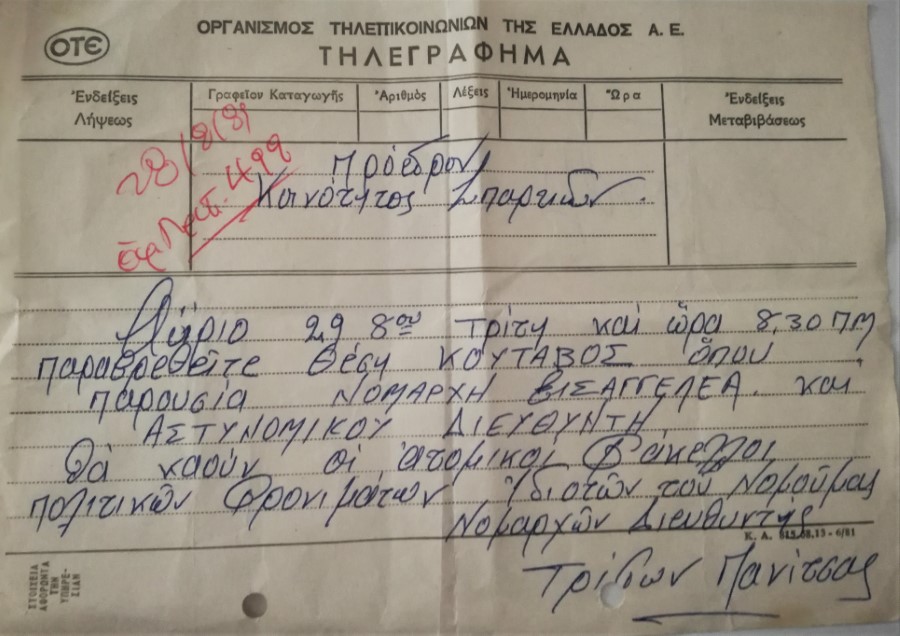 ΟΤΕ
ΟΡΓΑΝΙΣΜΟΣ ΤΗΛΕΠΙΚΟΙΝΩΝΙΩΝ ΤΗΣ ΕΛΛΑΔΟΣ Α. Ε.
ΤΗΛΕΓΡΑΦΗΜΑ
Ἐνδείξεις Λήψεως
Γραφεῖον Καταγωγῆς
Ἀριθμὸς
Λέξεις
Ἡμερομηνία
Ὥρα
Ἐνδείξεις Μεταβιβάσεως
28/8/89
Πρωτ. 499
Πρόεδρον
Κοινότητος Σπαρτιῶν.
Αὔριο 29 8ου Τρίτη καί ὥρα 8,30 πμ
παραβρεθεῖτε θέση ΚΟΥΤΑΒΟΣ ὅπου
παρουσία ΝΟΜΑΡΧΗ ΕΙΣΑΓΓΕΛΕΑ. και
ΑΣΤΥΝΟΜΙΚΟΥ ΔΙΕΥΘΥΝΤΗ
θά καοῦν οἱ ἀτομικοι Φάκελλοι
πολιτικῶν Φρονιμάτων Ἰδιοτῶν τοῦ Νομοῦ μας
Νομαρχῶν Διευθυντής
Κ. Α. 815.08.13 - 6/81
Τρίφων Πανίτσας
ΣΤΟΙΧΕΙΑ
ΑΦΟΡΩΝΤΑ
ΤΗΝ
ΥΠΗΡΕ-
ΣΙΑΝ